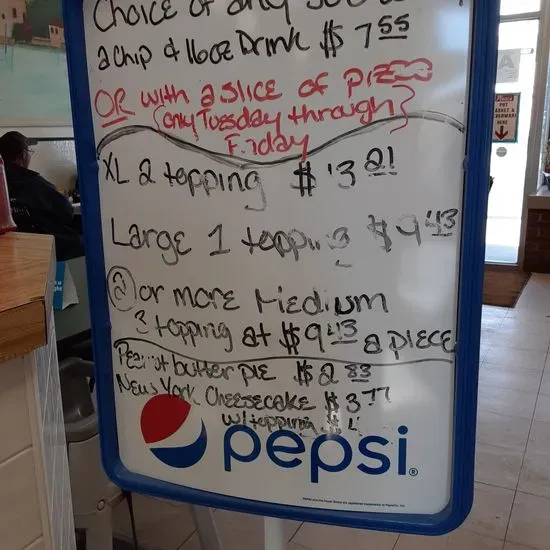 Choice of any sub
a chip & 16oz Drink $ 7 55
OR with a slice of pizza
(only Tuesday through
Friday)
XL 2 topping $ 13 21
Large 1 topping $9 43
② or more Medium
3 topping at $9 43 a piece
Peanut butter pie $2 83
New York Cheesecake $3 77
w/topping $4
pepsi
PUT
HERE